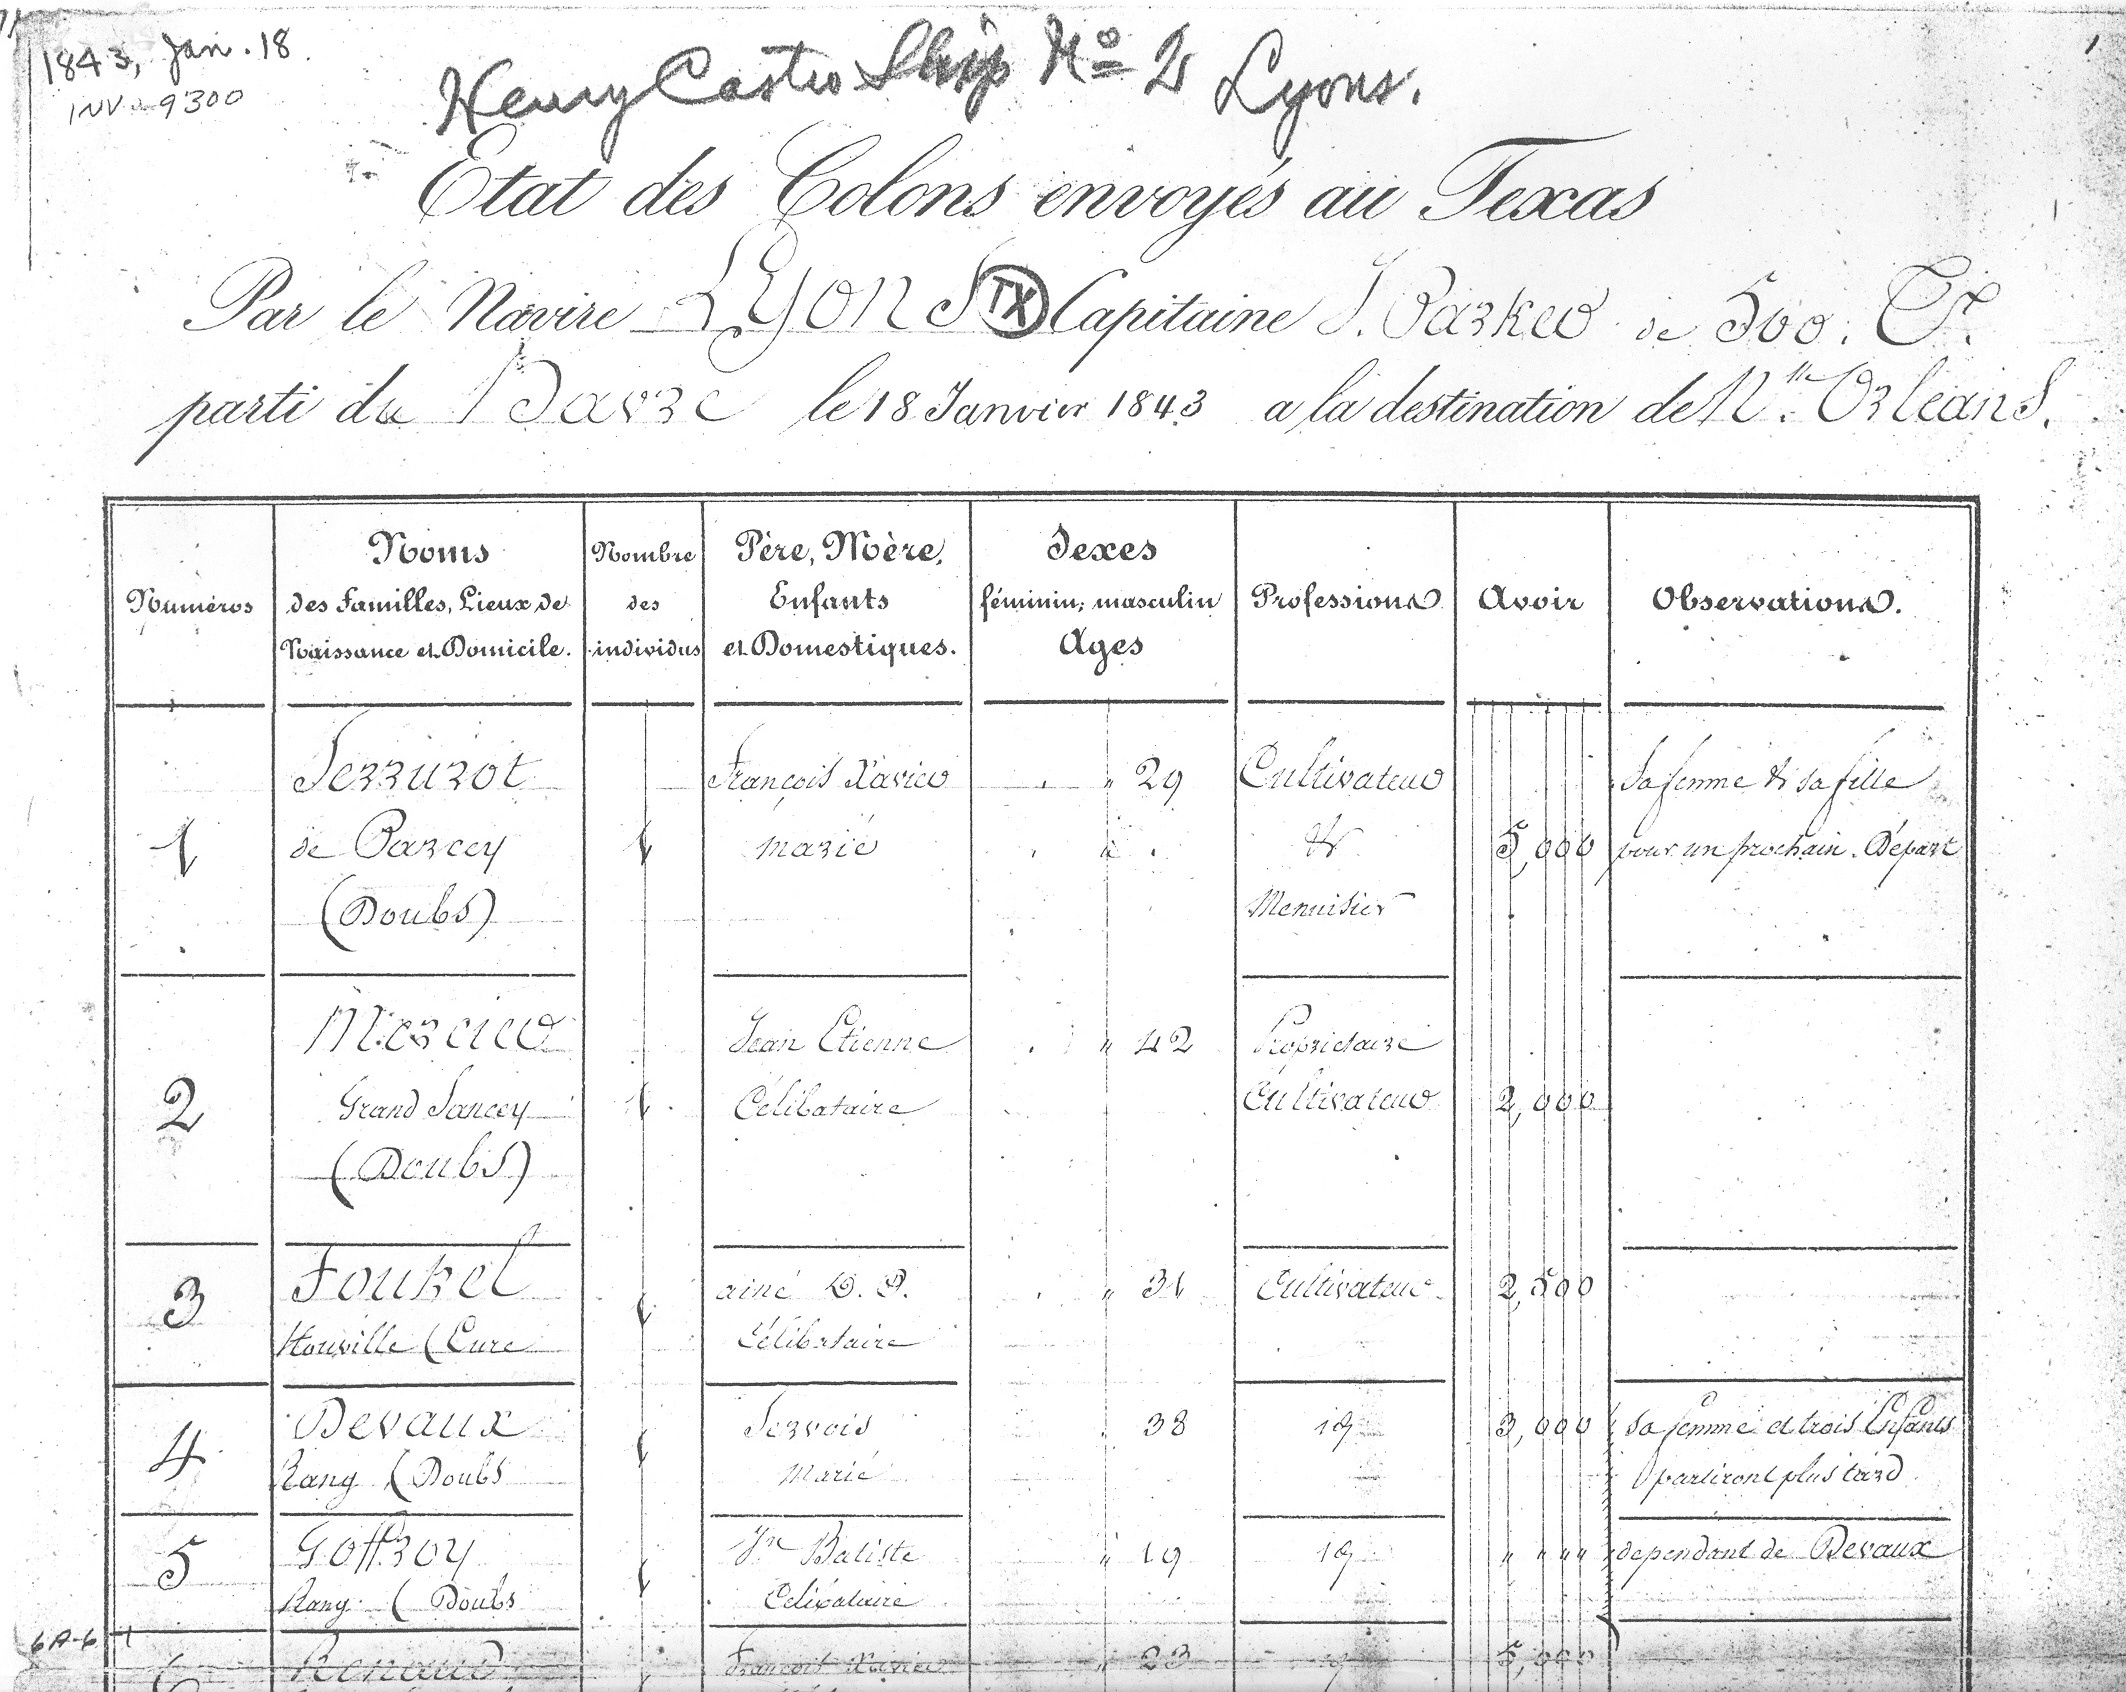 1843, Jan. 18.
INV 9300
Henry Castro Ship No 2 Lyons.
Etat des Colons envoyés au Texas
Par le Navire Lyons TX Capitaine J. Parker de 500. Tx.
parti du Havre le 18 Janvier 1843 a la destination de Nlle Orleans.
Numéros
Noms
des Familles, Lieux de
Naissance et Domicile.
Nombre
des
individus
Père, Mère,
Enfants
et Domestiques.
Sexes
féminin, masculin
Ages
Professions
Avoir
Observations.
1
Serrurot
de Parcey
(Doubs)
1
François Xavier
marié
" 29
Cultivateur
&
Menuisier
5,000
Sa femme & sa fille
pour un prochain Départ
2
Mercier
Grand Sancey
(Doubs)
1
Jean Etienne
Célibataire
" 42
Propriétaire
Cultivateur
2,000
3
Foukel
Houville (Eure
1
ainé D. D.
Célibataire
" 31
Cultivateur
2,500
4
Devaux
Rang (Doubs
1
Servois
Marié
38
id
3,000
Sa femme et trois Enfants
partiront plus tard
5
Goffroy
Rang (Doubs
1
Jn Batiste
Célibataire
" 19
id
" " " "
dependant de Devaux
6A-6
6
Renaud
François Xavier
" 23
5,000